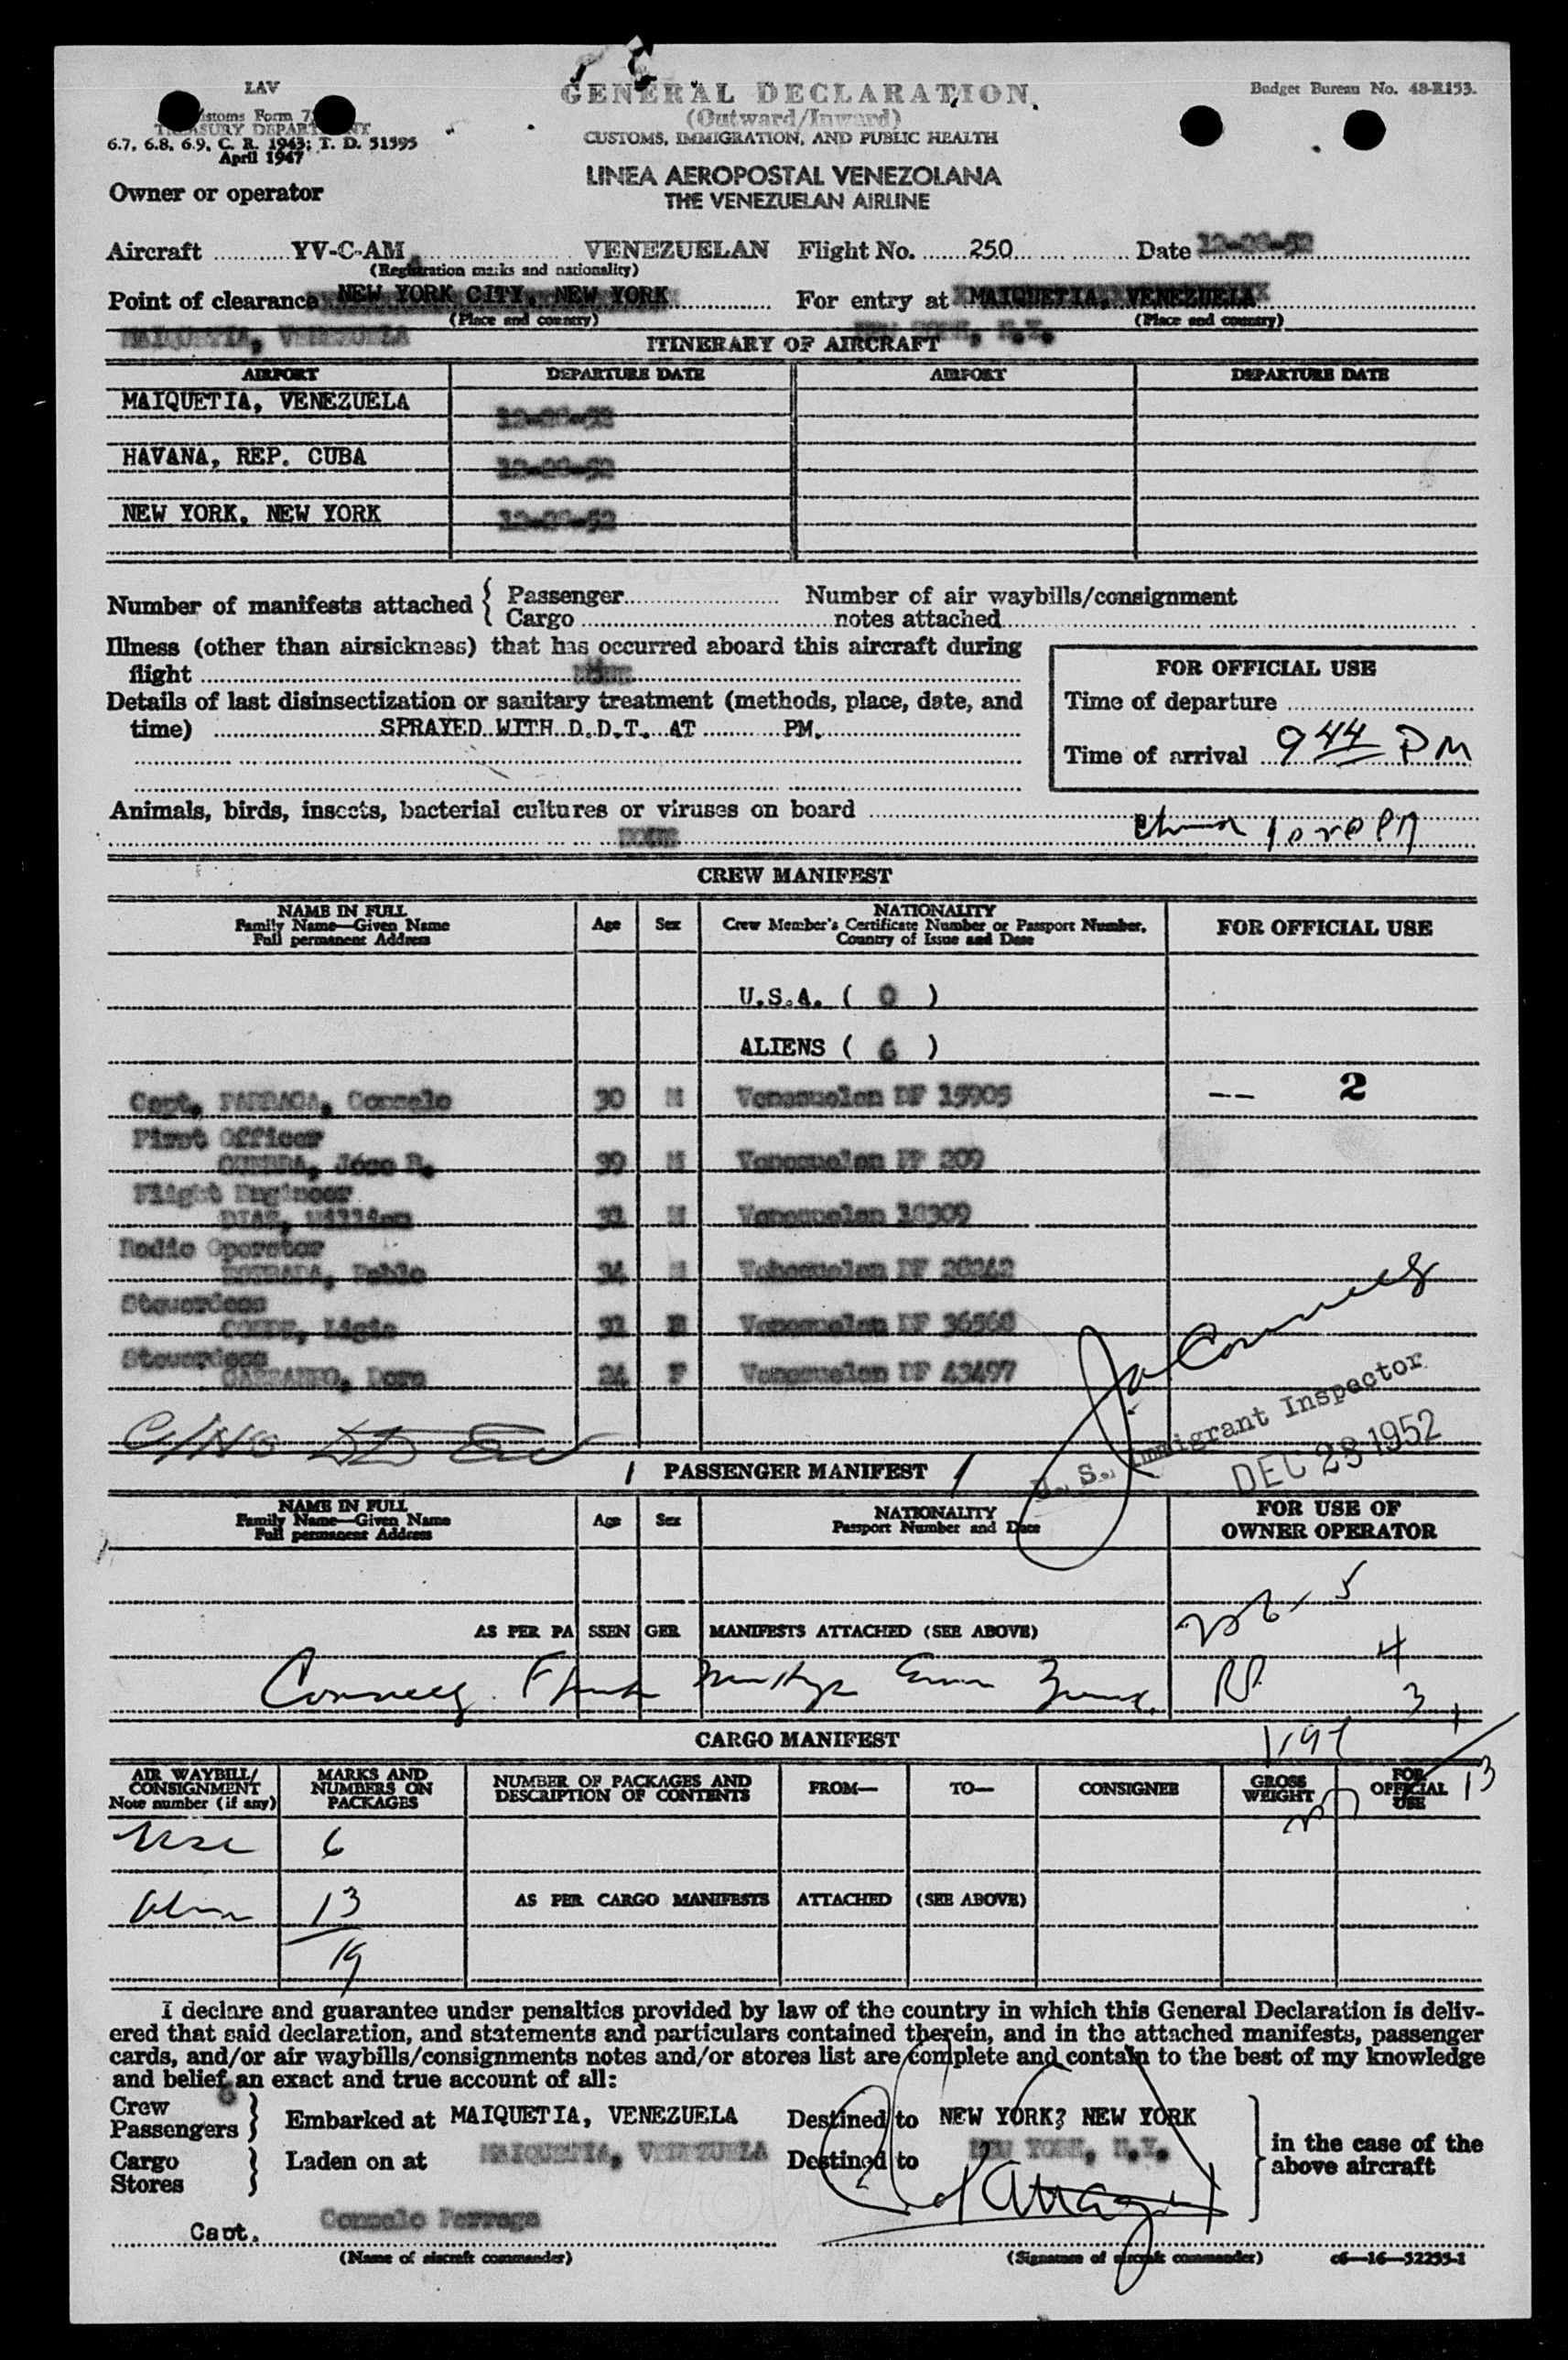 LAV
GENERAL DECLARATION
Budget Bureau No. 48-R153.
(Outward/Inward)
CUSTOMS, IMMIGRATION, AND PUBLIC HEALTH
6.7, 6.8, 6.9, C. R. 1943; T. D. 51595
April 1947
LINEA AEROPOSTAL VENEZOLANA
THE VENEZUELAN AIRLINE
Owner or operator
Aircraft YV-C-AM VENEZUELAN Flight No. 250 Date
(Registration marks and nationality)
Point of clearance NEW YORK CITY, NEW YORK For entry at MAIQUETIA, VENEZUELA
(Place and country) (Place and country)
MAIQUETIA, VENEZUELA NEW YORK, N.Y.
ITINERARY OF AIRCRAFT
AIRPORT DEPARTURE DATE AIRPORT DEPARTURE DATE
MAIQUETIA, VENEZUELA
HAVANA, REP. CUBA
NEW YORK, NEW YORK
Number of manifests attached { Passenger Number of air waybills/consignment
Cargo notes attached
Illness (other than airsickness) that has occurred aboard this aircraft during
flight
Details of last disinsectization or sanitary treatment (methods, place, date, and
time) SPRAYED WITH D.D.T. AT PM.
FOR OFFICIAL USE
Time of departure
Time of arrival 9 44 PM
Animals, birds, insects, bacterial cultures or viruses on board
NONE
CREW MANIFEST
NAME IN FULL
Family Name—Given Name
Full permanent Address
Age
Sex
NATIONALITY
Crew Member's Certificate Number or Passport Number,
Country of Issue and Date
FOR OFFICIAL USE
U.S.A. ( 0 )
ALIENS ( 6 )
Capt. PARRAGA, Consalo 30 M Venezuelan DF 15905 -- 2
First Officer
GUERRA, Jóse R. 39 M Venezuelan 209
Flight Engineer
DIAZ, William M Venezuelan 18309
Radio Operator
ESTRADA, Pablo 34 M Venezuelan DF
Stewardess
Ligia Venezuelan DF 36568
Stewardess
Dora 24 F Venezuelan DF 43497
U. S. Immigrant Inspector
DEC 28 1952
PASSENGER MANIFEST
NAME IN FULL
Family Name—Given Name
Full permanent Address
Age
Sex
NATIONALITY
Passport Number and Date
FOR USE OF
OWNER OPERATOR
5
AS PER PASSENGER MANIFESTS ATTACHED (SEE ABOVE)
4
3
CARGO MANIFEST
AIR WAYBILL/
CONSIGNMENT
Note number (if any)
MARKS AND
NUMBERS ON
PACKAGES
NUMBER OF PACKAGES AND
DESCRIPTION OF CONTENTS
FROM—
TO—
CONSIGNEE
GROSS
WEIGHT
FOR
OFFICIAL
USE
13
6
13 AS PER CARGO MANIFESTS ATTACHED (SEE ABOVE)
19
I declare and guarantee under penalties provided by law of the country in which this General Declaration is deliv-
ered that said declaration, and statements and particulars contained therein, and in the attached manifests, passenger
cards, and/or air waybills/consignments notes and/or stores list are complete and contain to the best of my knowledge
and belief an exact and true account of all:
Crew 6
Passengers } Embarked at MAIQUETIA, VENEZUELA Destined to NEW YORK? NEW YORK
Cargo
Stores } Laden on at MAIQUETIA, VENEZUELA Destined to NEW YORK, N.Y.
in the case of the
above aircraft
Capt. Consalo Parraga
(Name of aircraft commander) (Signature of aircraft commander) c6—16—52255-1